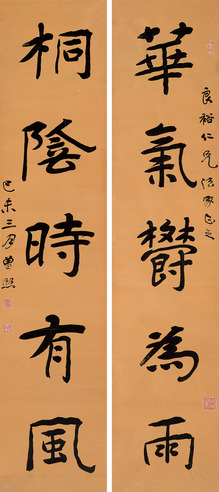 華氣鬱為雨
良裕仁兄法家正之
桐陰時有風
己未三月曾熙